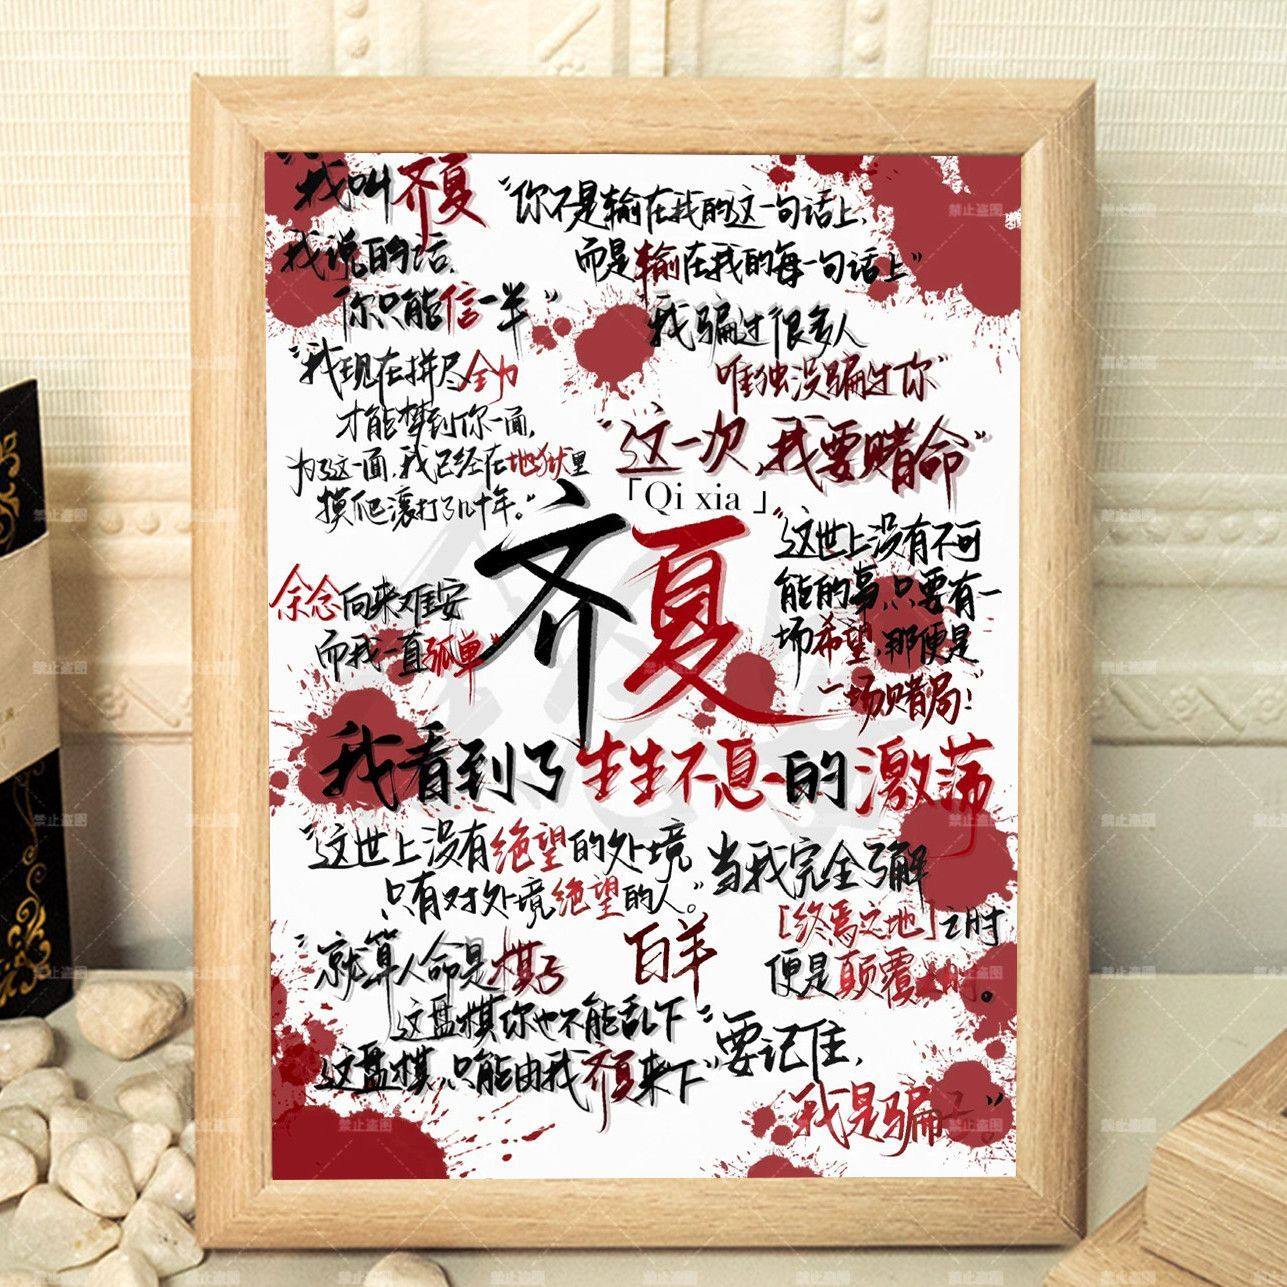 “我叫齐夏
我说的话，
你只能信一半”
“你不是输在我的这一句话上，
而是输在我的每一句话上”
我骗过很多人
唯独没骗过你”
“我现在拼尽全力
才能梦到你一面，
为了这一面，我已经在地狱里
摸爬滚打了几十年。”
“这一次，我要赌命”
「Qi xia」
齐夏
“这世上没有不可
能的事，只要有一
场希望，那便是
一场赌局！
余念向来难安
而我一直孤单”
我看到了生生不息的激荡
“这世上没有绝望的处境
只有对处境绝望的人。”
当我完全了解
[终焉之地]之时
便是颠覆之时。
“就算人命是棋子
这盘棋你也不能乱下
这盘棋，只能由我齐夏来下”
白羊
“要记住，
我是骗子”
禁止盗图